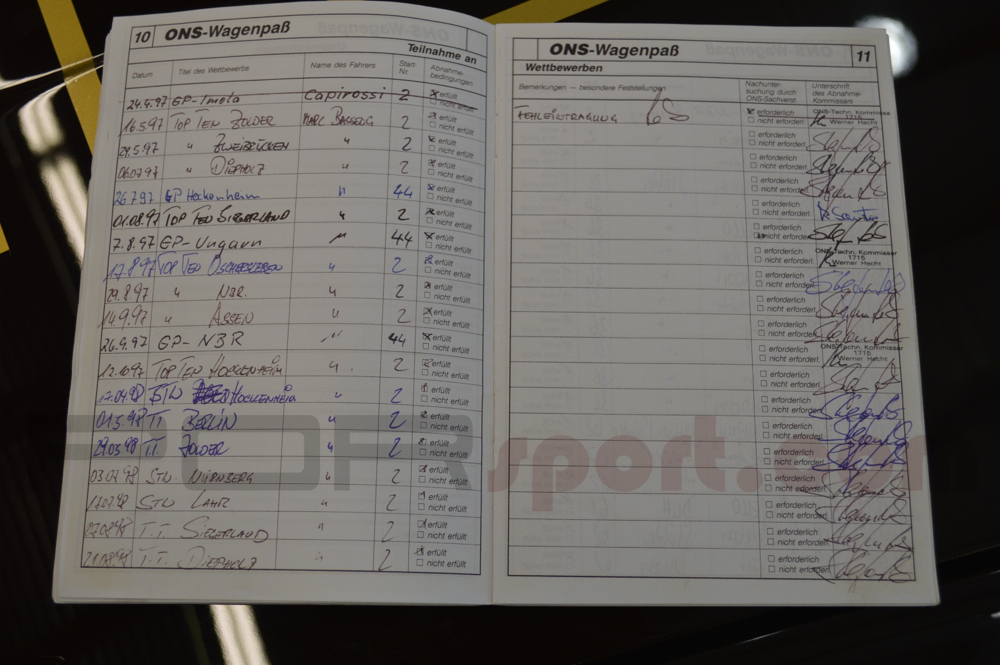 10 ONS-Wagenpaß
Teilnahme an
Datum Titel des Wettbewerbs Name des Fahrers Start-Nr. Abnahme-bedingungen
24.4.97 GP-Imola Capirossi 2 erfüllt nicht erfüllt
16.5.97 TOP TEN ZOLDER 2 erfüllt nicht erfüllt
29.5.97 " ZWEIBRÜCKEN " 2 erfüllt nicht erfüllt
06.07.97 " DIEPHOLZ " 2 erfüllt nicht erfüllt
26.7.97 GP Hockenheim " 44 erfüllt nicht erfüllt
01.08.97 TOP TEN SIEGERLAND " 2 erfüllt nicht erfüllt
7.8.97 GP-Ungarn " 44 erfüllt nicht erfüllt
17.8.97 TOP TEN OSCHERSLEBEN " 2 erfüllt nicht erfüllt
29.8.97 " NBR. " 2 erfüllt nicht erfüllt
14.9.97 " ASSEN " 2 erfüllt nicht erfüllt
26.9.97 GP-NBR " 44 erfüllt nicht erfüllt
12.10.97 TOP TEN HOCKENHEIM " 2 erfüllt nicht erfüllt
17.04.98 STW HOCKENHEIM " 2 erfüllt nicht erfüllt
01.5.98 TT BERLIN " 2 erfüllt nicht erfüllt
29.05.98 T.T. ZOLDER " 2 erfüllt nicht erfüllt
03.07.98 STW NÜRNBERG " 2 erfüllt nicht erfüllt
17.07.98 STW LAHR " 2 erfüllt nicht erfüllt
07.08.98 T.T. SIEGERLAND " 2 erfüllt nicht erfüllt
21.08.98 T.T. DIEPHOLZ " 2 erfüllt nicht erfüllt
ONS-Wagenpaß 11
Wettbewerben
Bemerkungen — besondere Feststellungen Nachunter-suchung durch ONS-Sachverst. Unterschrift des Abnahme-Kommissars
FEHLEINTRAGUNG erforderlich nicht erforderl. ONS-Techn. Kommissar 1715 Werner Hecht
erforderlich nicht erforderl.
erforderlich nicht erforderl.
erforderlich nicht erforderl.
erforderlich nicht erforderl.
erforderlich nicht erforderl.
erforderlich nicht erforderl. ONS-Techn. Kommissar 1715 Werner Hecht
erforderlich nicht erforderl.
erforderlich nicht erforderl.
erforderlich nicht erforderl.
erforderlich nicht erforderl. ONS-Techn. Kommissar 1715 Werner Hecht
erforderlich nicht erforderl.
erforderlich nicht erforderl.
erforderlich nicht erforderl.
erforderlich nicht erforderl.
erforderlich nicht erforderl.
erforderlich nicht erforderl.
erforderlich nicht erforderl.
erforderlich nicht erforderl.